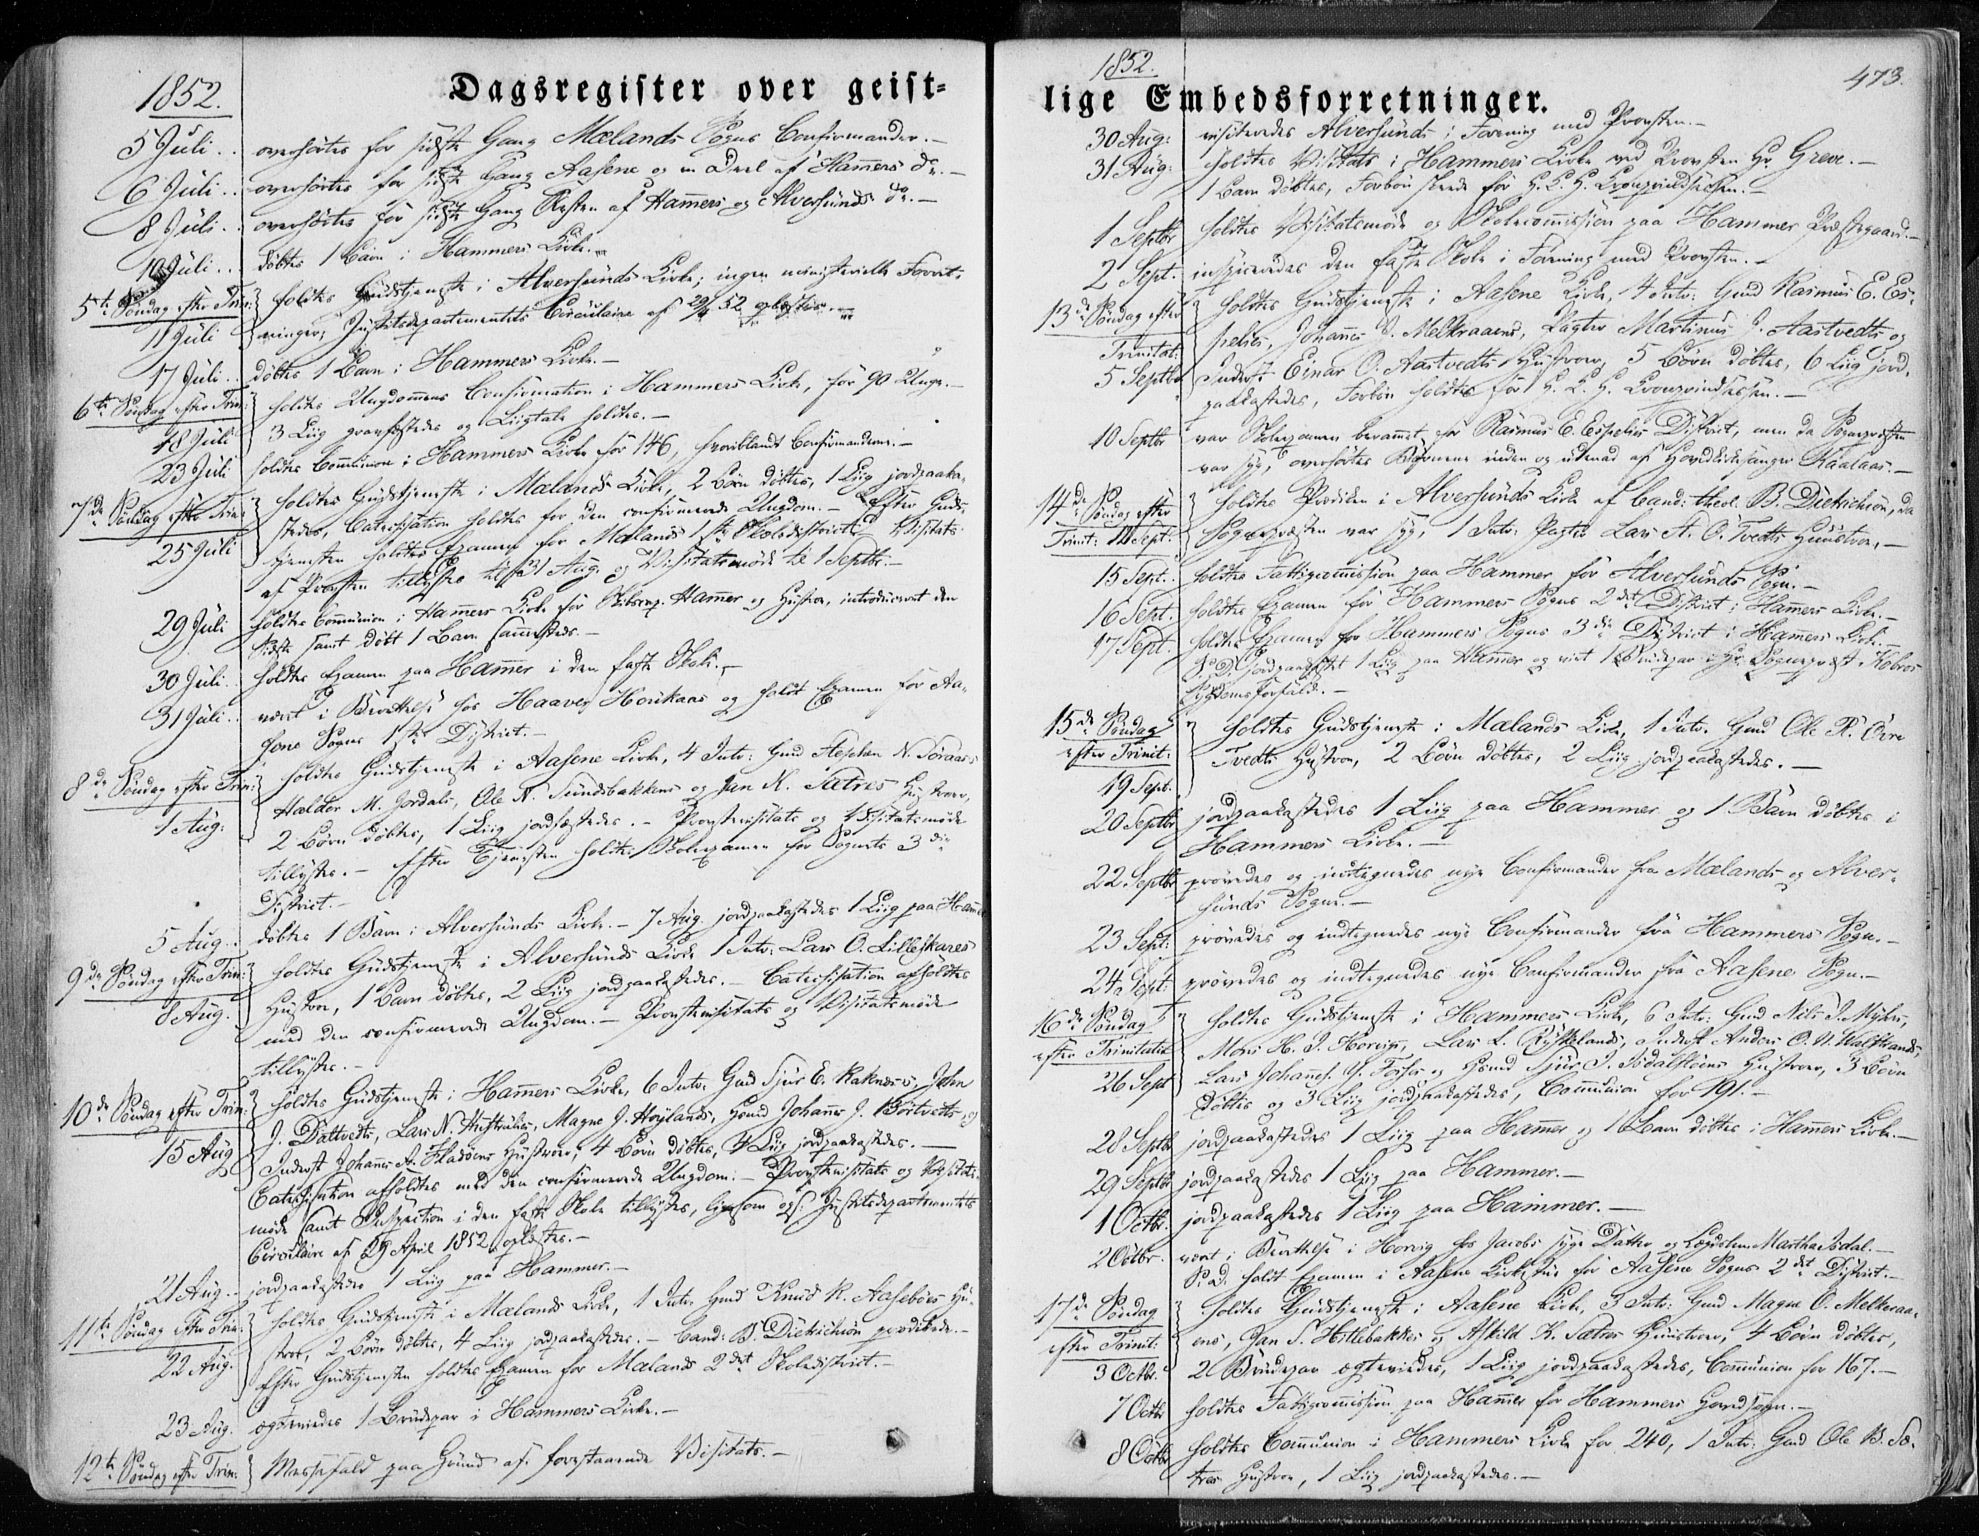 1852.
Dagsregister over geist-
5 Juli .. overhørtes for sidste Gang Mælands Sogns Confirmander.—
6 Juli .. overhørtes for sidste Gang Aasene og en Deel af Hamers do.—
8 Juli .. overhørtes for sidste Gang Resten af Hamers og Alversunds do.—
10 Juli .. døbtes 1 Barn i Hammers Kirke.—
5te Søndag efter Trin: holdtes Gudstjeneste i Alversunds Kirke; ingen ministerielle Forret-
11 Juli ninger; Justitsdepartementets Circulaire af 29/4 52 oplæstes.—
17 Juli .. døbtes 1 Barn i Hammers Kirke.—
6te Søndag efter Trin: holdtes Ungdommens Confirmation i Hammers Kirke, for 90 Unge.—
18 Juli 3 Liig gravfæstedes og Liigtale holdtes.—
23 Juli holdtes Communion i Hammers Kirke for 146, hvoriblandt Confirmanderne.—
7de Søndag efter Trin: holdtes Gudstjeneste i Mælands Kirke, 2 Børn døbtes, 1 Liig jordpaaka-
25 Juli stedes, Catechisation holdtes for den confirmerede Ungdom.— Efter Guds-
tjenesten holdtes Examen for Mælands 1ste Skoledistrict.— Visitats
af Provsten tillystes til 31 Aug. og Visitatsmøde til 1 Septbr.—
29 Juli holdtes Communion i Hamers Kirke for Skibscap. Hamer og Hustru, introduceret den
sidste samt døbt 1 Barn sammesteds.—
30 Juli .. holdtes Examen paa Hamer i den faste Skole.—
31 Juli .. været i Berettelse hos Haaver Honkaas og holdt Examen for Aa-
sene Sogns 1ste District.—
8de Søndag efter Trin: holdtes Gudstjeneste i Aasene Kirke, 4 Intr: Gmd Stephen N. Toraas,
1 Aug: Haldor M. Jordals, Ole N. Sundsbakkens og Jan N. Sætres Hustroer,
2 Børn døbtes, 1 Liig jordfæstedes.— Provstevisitats og Visitatsmøde
tillystes.— Efter Tjenesten holdtes Skoleexamen for Sognets 3die
District.—
5 Aug .. døbtes 1 Barn i Alversunds Kirke.— 7 Aug. jordpaakastedes 1 Liig paa Hamer
9de Søndag efter Trin: holdtes Gudstjeneste i Alversunds Kirke 1 Intr: Lars O. Lilleskares
8 Aug. Hustroe, 1 Barn døbtes, 2 Liig jordpaakastedes.— Catechisation afholdtes
med den confirmerede Ungdom.— Provstevisitats og Visitatsmøde
tillystes.—
10de Søndag efter Trin: holdtes Gudstjeneste i Hamers Kirke, 6 Intr: Gmd Sjur E. Raknæs's, John
15 Aug J. Dattvedts, Lars N. , Magne J. Høylands, Gmd Johannes J. Børtvedts, og
Inderst Johannes A. Hladsens Hustroer, 4 Børn døbtes, 4 Liig jordpaakastedes.—
Catechisation afholdtes med den confirmerede Ungdom.— Provstevisitats og Visitats-
møde samt Inspection i den faste Skole tillystes, ligesom ogs: Justitsdepartementets
Circulaire af 29 April 1852 oplæstes.—
21 Aug .. jordpaakastedes 1 Liig paa Hammer.—
11te Søndag efter Trin: holdtes Gudstjeneste i Mælands Kirke, 1 Intr: Gmd Knud R. Aasebøes Hu-
22 Aug. stroe, 2 Børn døbtes, 4 Liig jordpaakastedes.— Cand: B. Dietrichson prædikede.—
Efter Gudstjenesten holdtes Examen for Mælands 2det Skoledistrict.—
23 Aug. ægteviedes 1 Brudepar i Hammers Kirke.—
12te Søndag efter Trin: Messefald paa Grund af forestaaende Visitats.—
1852.
473.
lige Embedsforretninger.
30 Aug: visiteredes Alversunds i Forening med Provsten.—
31 Aug: holdtes Visitats i Hammers Kirke ved Provsten Hr. Greve.—
1 Barn døbtes, Forbøn skeede for H. K. H. Kronprindsessen.—
1 Septbr holdtes Visitatsmøde og Skolecommission paa Hammer Præstegaard.—
2 Sept. inspiceredes den faste Skole i Forening med Provsten.—
13de Søndag efter holdtes Gudstjeneste i Aasene Kirke, 4 Intr: Gmd Rasmus E. Es-
Trinitat: pelies, Johannes J. Melkraaens, Pagter Martinus J. Aastvedts og
5 Septbr Inderst Einar O. Aastvedts Hustroer, 5 Børn døbtes, 6 Liig jord-
paakastedes, Forbøn holdtes for H. K. H. Kronprindsessen.—
10 Septbr var Skoleexamen berammet for Rasmus E. Espelies District, men da Sognepræsten
var syg, overhørtes Børnene inden og udenad af Hovedkirkesanger Kaalaas.—
14de Søndag efter holdtes Prædiken i Alversunds Kirke af Cand: theol. B. Dietrichson, da
Trinit: 12 Sept: Sognepræsten var syg, 1 Intr: Pagter Lars A. O. Tvedts Hustroe.—
15 Sept. holdtes Fattigcommission paa Hammer for Alversunds Sogn.—
16 Sept. holdtes Examen for Hammers Sogns 2det District i Hamers Kirke.—
17 Sept. holdtes Examen for Hammers Sogns 3die District i Hamers Kirke.—
S. D. jordpaakastet 1 Liig paa Hammer og viet 1 Brudepar i Hr. Sognepræst Kobros
Sygdomsforfald.—
15de Søndag holdtes Gudstjeneste i Mælands Kirke, 1 Intr. Gmd Ole R. Øvre
efter Trinit: Tvedts Hustroe, 2 Børn døbtes, 2 Liig jordpaakastedes.—
19 Sept.
20 Septbr jordpaakastedes 1 Liig paa Hammer og 1 Barn døbtes i
Hammers Kirke.—
22 Septbr prøvedes og indtegnedes nye Confirmander fra Mælands og Alver-
sunds Sogne.—
23 Sept: prøvedes og indtegnedes nye Confirmander fra Hammers Sogn.—
24 Sept: prøvedes og indtegnedes nye Confirmander fra Aasene Sogn.—
16de Søndag holdtes Gudstjeneste i Hammers Kirke, 6 Intr: Gmd Nils J. Mykers,
efter Trinitatis Mons H. J. Horvigs, Lars L. Rylklands, Inderst Anders O. N. ,
26 Sept Lars Johannes. J. Forses og Hsmd Sjur J. Isdalsløens Hustroer, 3 Børn
døbtes og 3 Liig jordpaakastedes, Communion for 191.—
28 Septbr jordpaakastedes 1 Liig paa Hamer og 1 Barn døbtes i Hamers Kirke.—
29 Septbr jordpaakastedes 1 Liig paa Hammer.—
1 Octbr. jordpaakastedes 1 Liig paa Hammer.—
2 Octbr. været i Berettelse i Horvig hos Jacobs syge Datter og Martha Isdal.—
S. D. holdt Examen i Aasene Kirkestue for Aasene Sogns 2det District.—
17de Søndag holdtes Gudstjeneste i Aasene Kirke, 3 Intr: Gmd Magne O. Melkeraa-
efter Trinit: ens, Jan S. Hitlebakkes og Askild K. Sætres Hustroer, 4 Børn døbtes,
3 Octbr. 2 Brudepar ægteviedes, 1 Liig jordpaakastedes, Communion for 167.—
7 Octbr holdtes Fattigcommission paa Hamer for Hammers Hovedsogn.—
8 Octbr holdtes Communion i Hammers Kirke for 240, 1 Intr: Gmd Ole B. Sæ-
tres Hustroe, 1 Liig jordpaakastedes.—